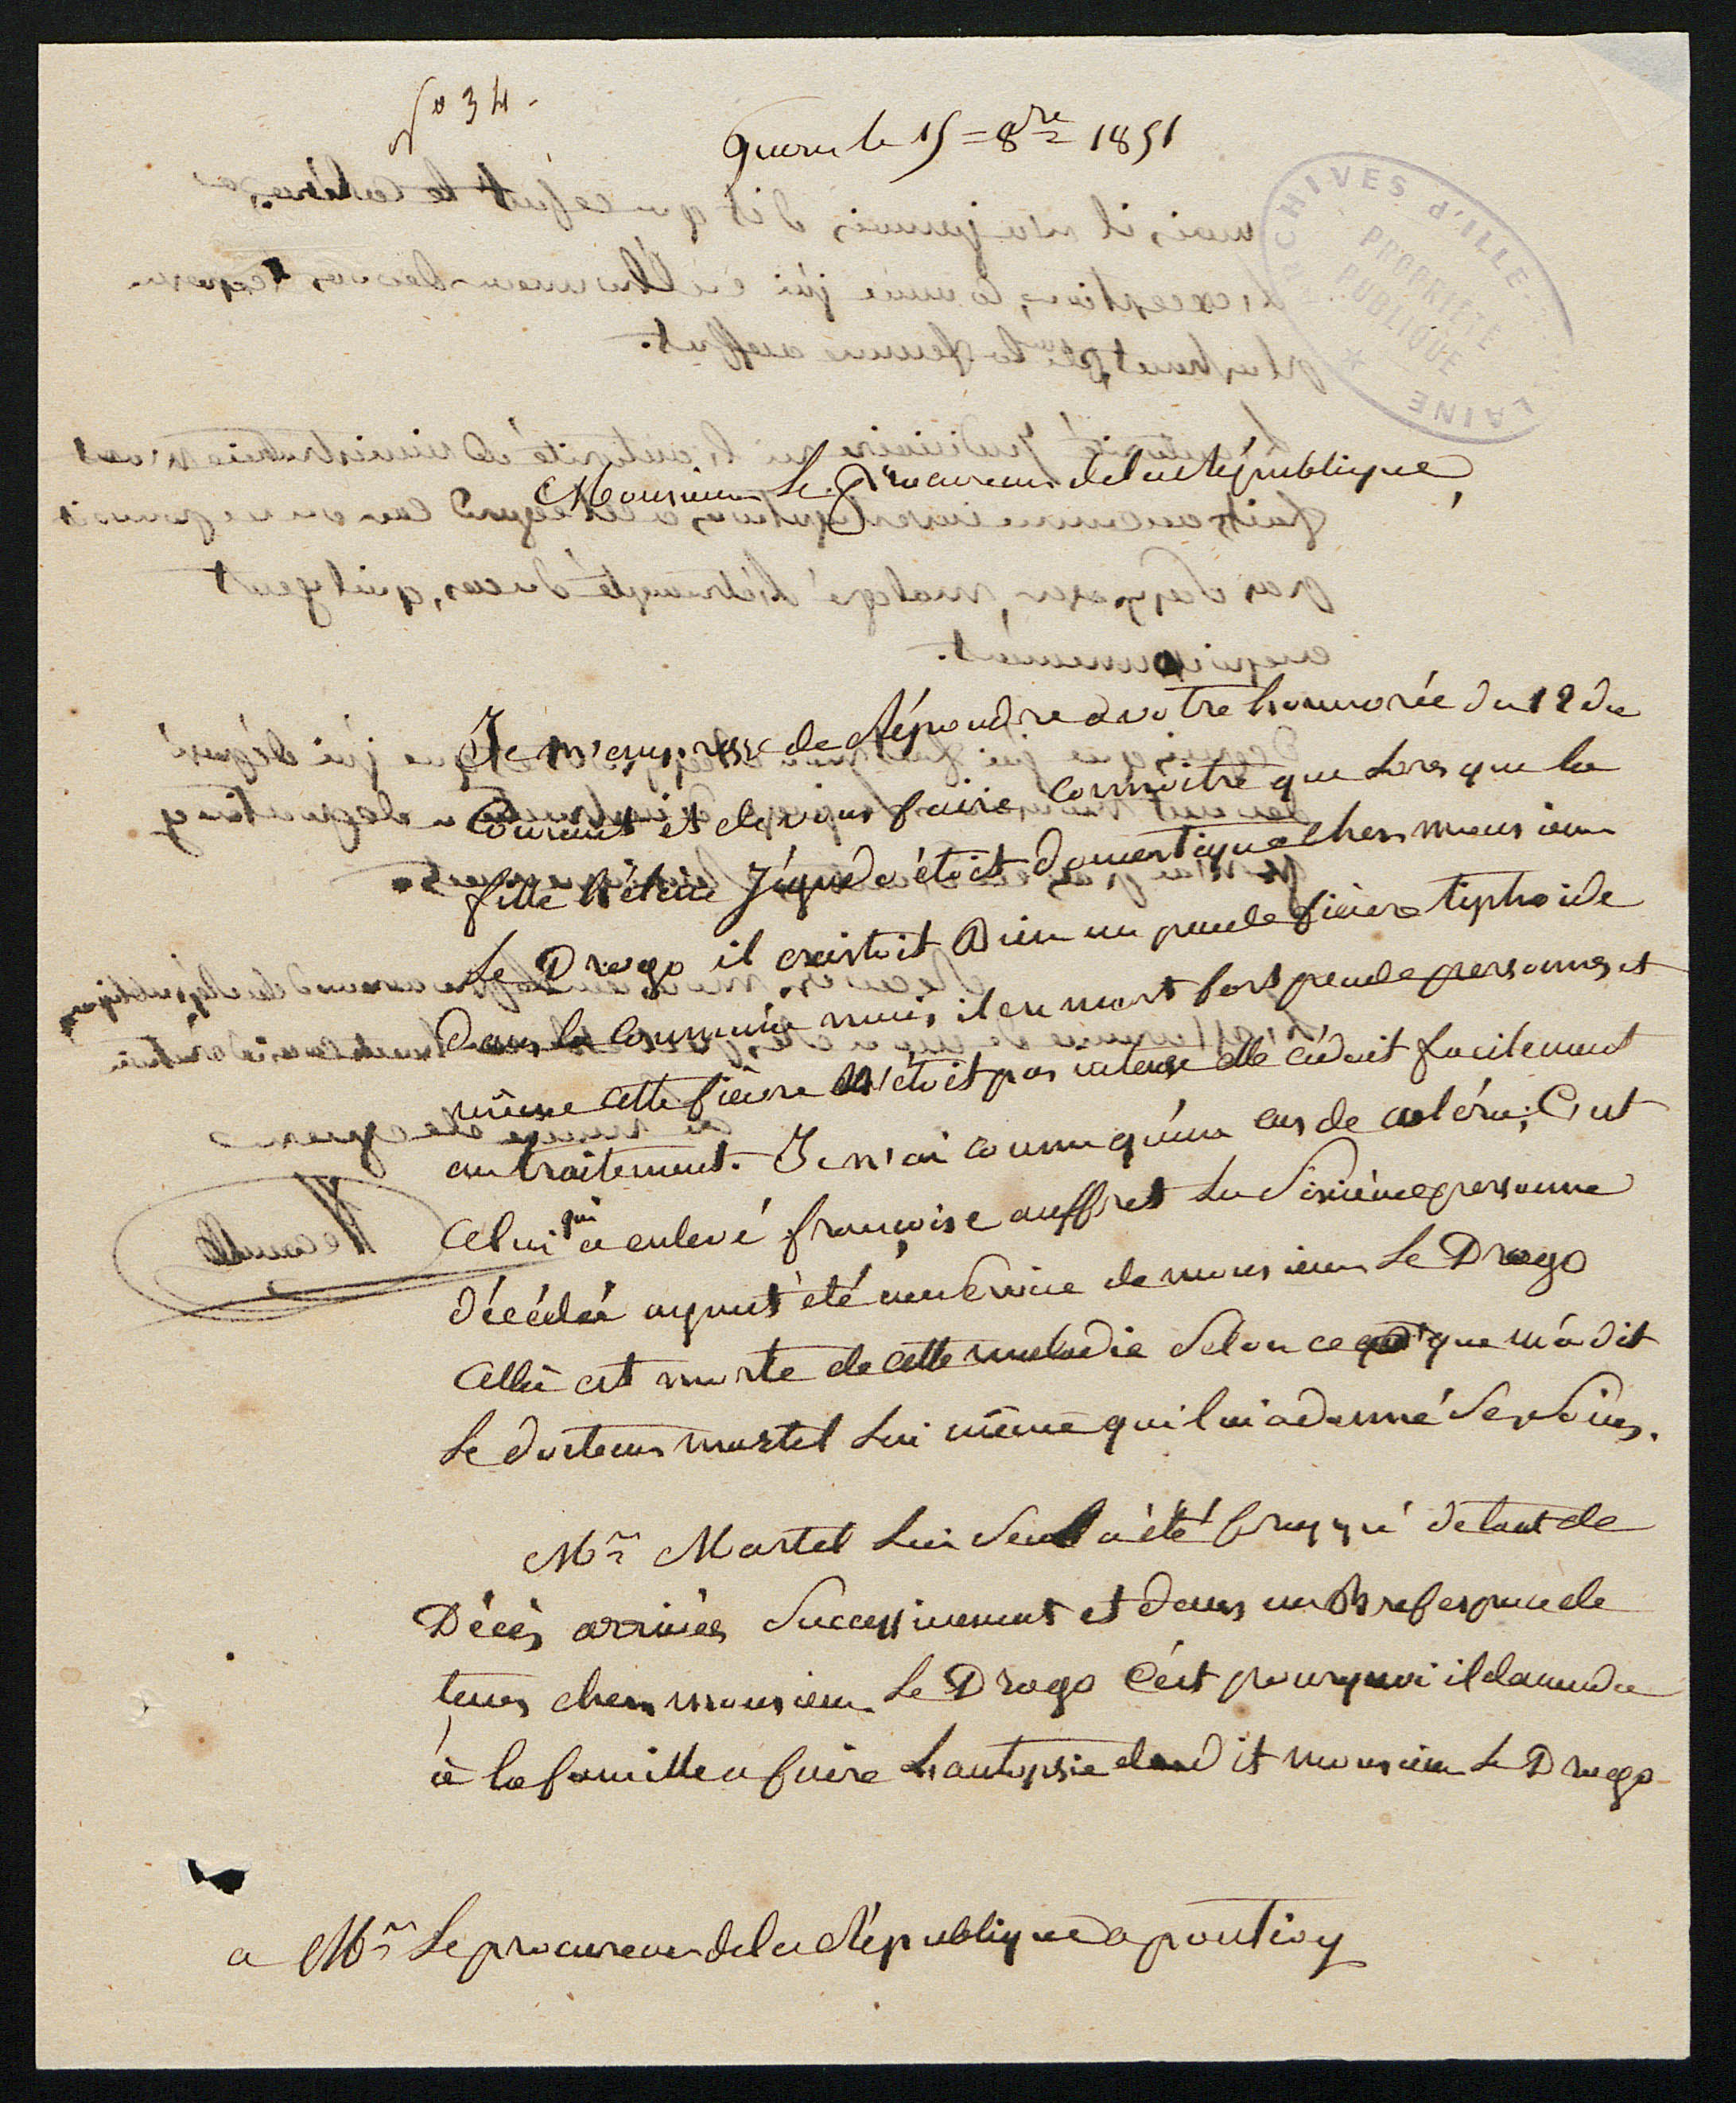 N° 34.
Guern le 15 = 8bre 1851
ARCHIVES d'ILLE
PROPRIÉTÉ
PUBLIQUE
LAINE
Monsieur Le Procureur de la République,
Je m'empresse de Répondre a votre honnorée du 12 du
Courant et de vous faire connoitre que Lors que la
fille hélène Jégado étoit domestique chez monsieur
Le Drogo il existoit Bien un peu de fièvre tiphoide
dans la Commune mais, il en mort fort peu de personnes et
même cette fièvre N'étoit pas intense elle cédait facilement
au traitement. Je n'ai connu qu'un cas de coléra; C'est
Celui qui a enlevé françoise auffret La Sixième personne
décédée ayant été au Service de monsieur Le Drogo
Celle ci est morte de cette maladie Selon ce que m'a dit
Le docteur martel Lui même qui lui a donné Ses Soins.
Mr Martel Lui Seul a été frappé de tant de
Décès arrivés Successivement et dans un Bref espace de
tems chez monsieur Le Drogo C'est pourquoi il demanda
à la famille a faire L'autopsie dud it monsieur Le Drogo
a Mr Le procureur de la République a pontivy